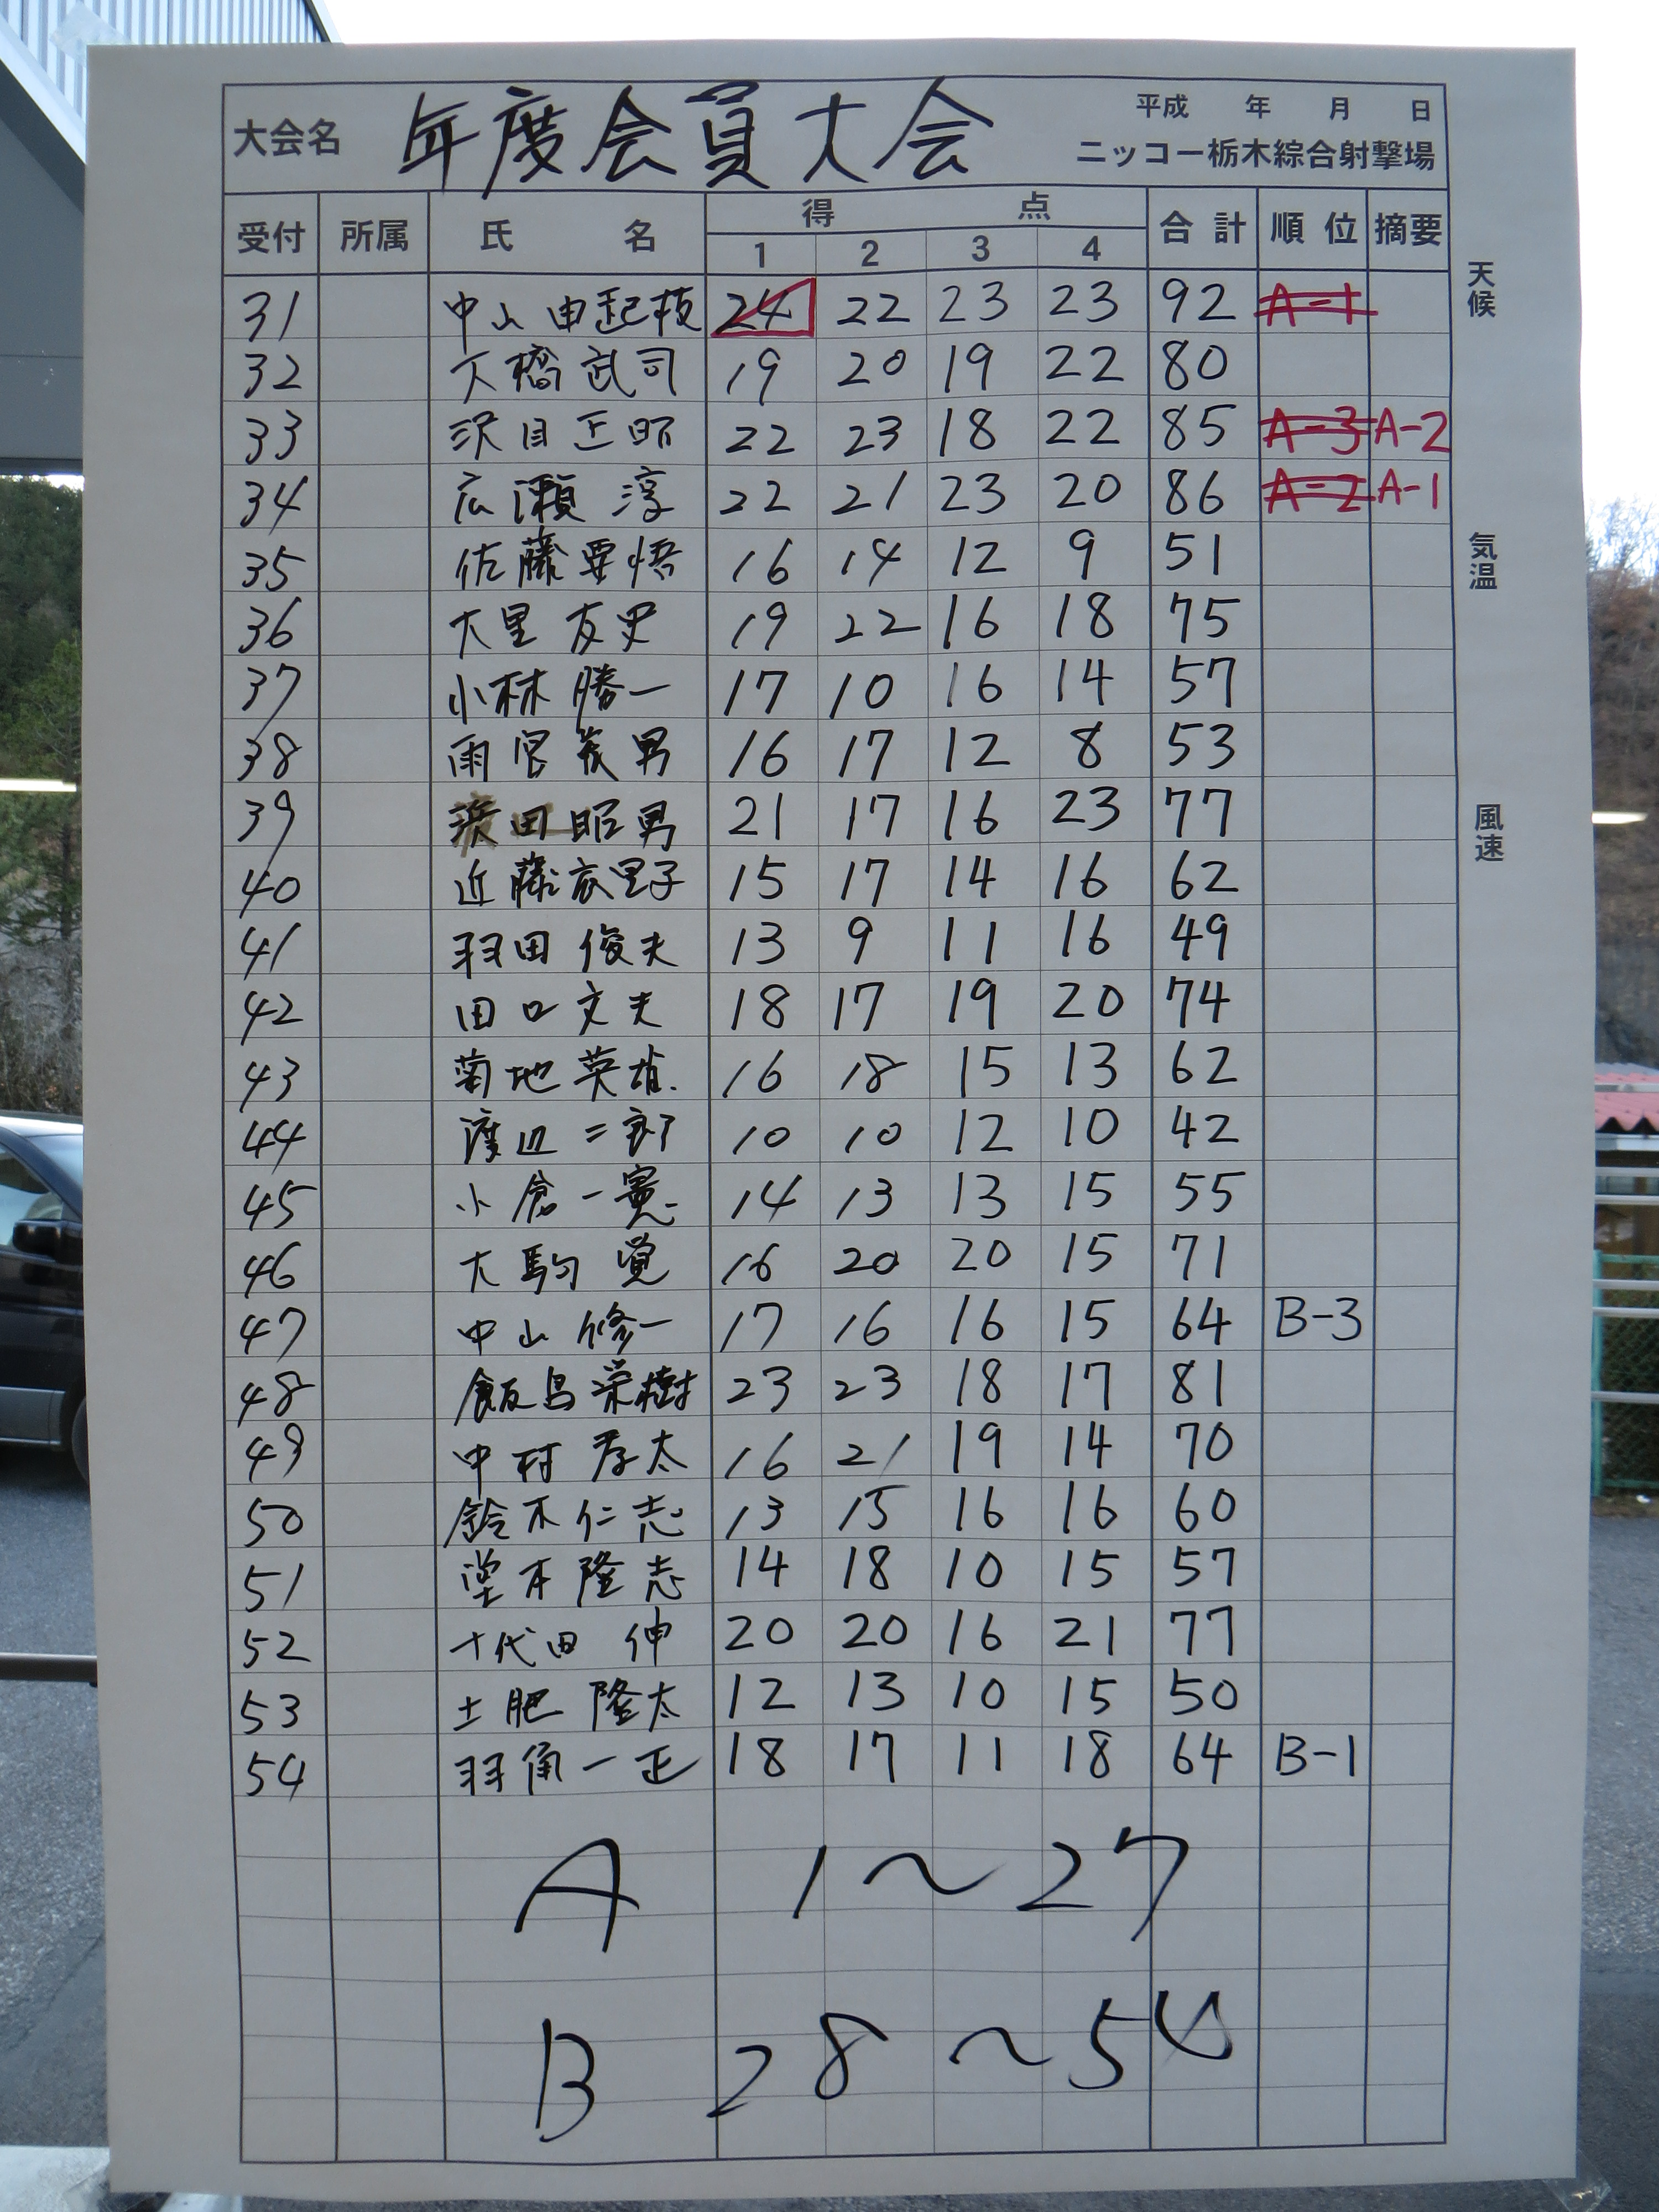 大会名 年度会員大会 平成 年 月 日
ニッコー栃木綜合射撃場
受付 所属 氏 名 得 点 合計 順位 摘要
1 2 3 4
31 中山由起枝 24 22 23 23 92 A-1
32 大橋武司 19 20 19 22 80
33 沢目正昭 22 23 18 22 85 A-3 A-2
34 広瀬淳 22 21 23 20 86 A-2 A-1
35 佐藤要悟 16 14 12 9 51
36 大里友史 19 22 16 18 75
37 小林勝一 17 10 16 14 57
38 雨宮茂男 16 17 12 8 53
39 田昭男 21 17 16 23 77
40 近藤衣里子 15 17 14 16 62
41 羽田俊夫 13 9 11 16 49
42 田口文夫 18 17 19 20 74
43 菊地英雄 16 18 15 13 62
44 渡辺二郎 10 10 12 10 42
45 小倉一寛 14 13 13 15 55
46 大駒覚 16 20 20 15 71
47 中山修一 17 16 16 15 64 B-3
48 飯島栄樹 23 23 18 17 81
49 中村孝太 16 21 19 14 70
50 鈴木仁志 13 15 16 16 60
51 本隆志 14 18 10 15 57
52 十代田伸 20 20 16 21 77
53 土肥隆太 12 13 10 15 50
54 羽角一正 18 17 11 18 64 B-1
A 1～27
B 28～54
天候
気温
風速